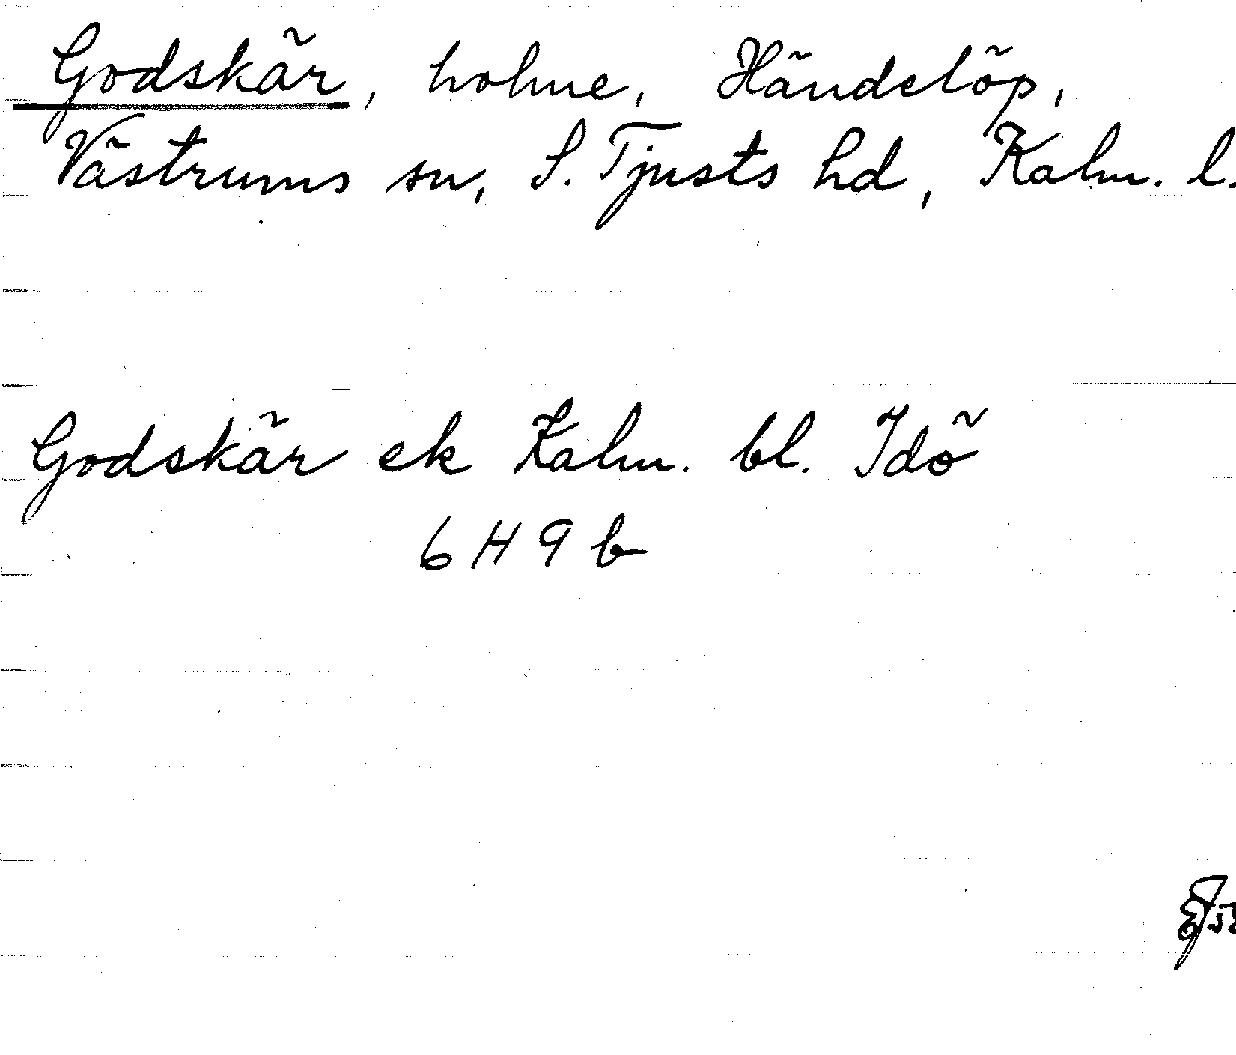 Godskär, holme, Händelöp,
Västrums sn, S. Tjusts hd, Kalm. l.
Godskär ek Kalm. bl. Idö
6 H 9 b